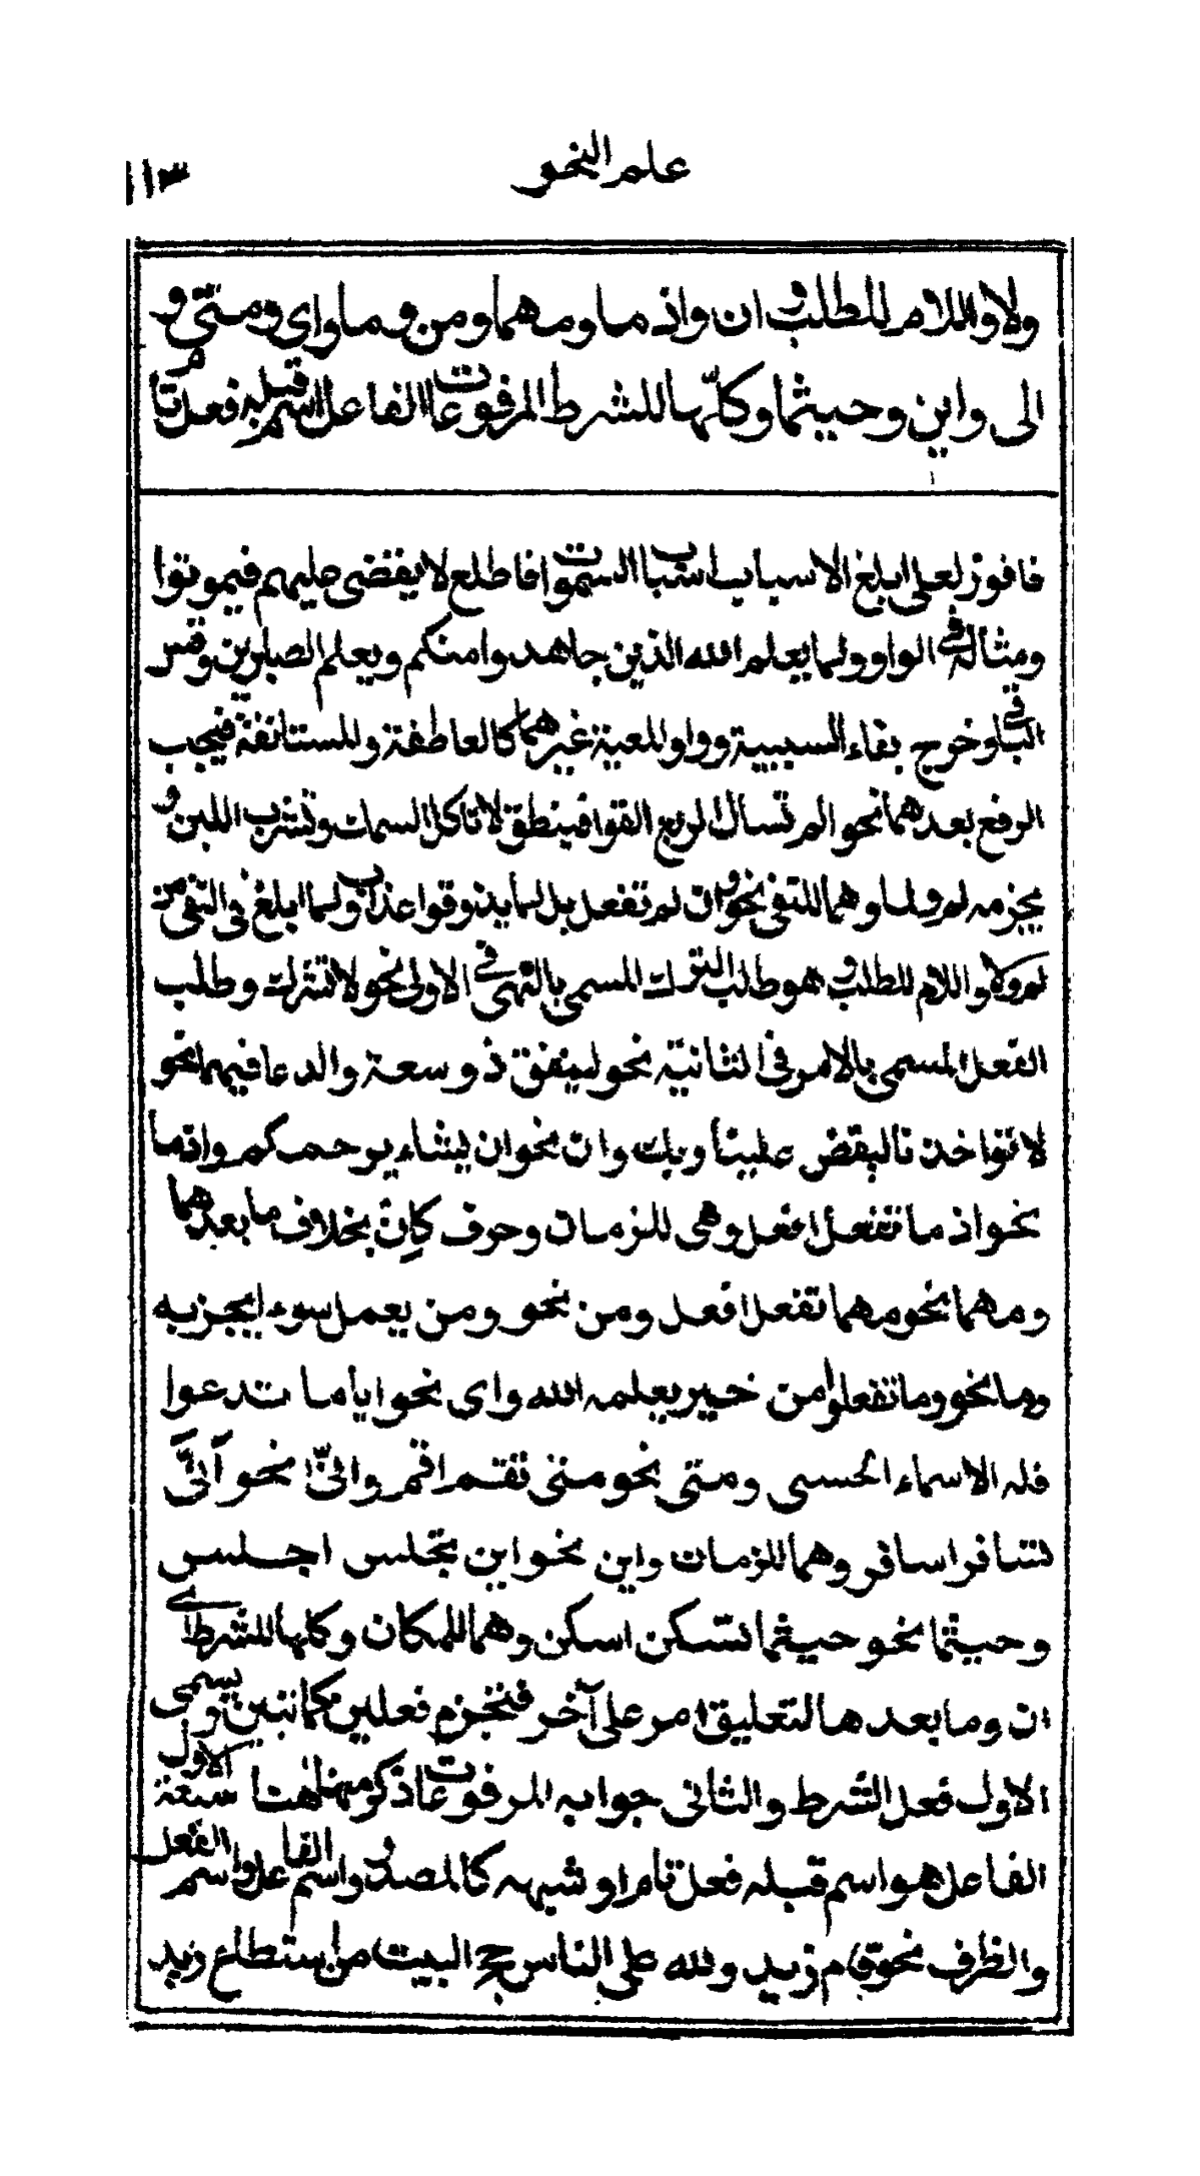 علم النحو
١١٣
ولا واللام للطلب وان واذ ما ومهما ومن وما واي ومتى و
انى واين وحيثما وكلّها للشرط المرفوعات الفاعل اسم قبله فعل تام
فافوز لعلى ابلغ الاسباب اسباب السموات فاطلع لا يقضى عليهم فيموتوا
ومثاله فى الواو ولما يعلم الله الذين جاهدوا منكم ويعلم الصابرين وقس
الباقى وخرج بفاء السببية وواو المعية غيرهما كالعاطفة والمستانفة فيجب
الرفع بعدهما نحو الم تسأل الربع القواء فينطق لا تاكل السمك وتشرب اللبن و
يجزمه لم ولما وهما للنفى نحو وان لم تفعل بل لما يذوقوا عذاب ولما ابلغ فى النفى من
لم ولا واللام للطلب وهو طلب الترك المسمى بالنهى فى الاولى نحو لا تشرك وطلب
الفعل المسمى بالامر فى الثانية نحو لينفق ذو سعة والدعا فيهما نحو
لا تؤاخذنا ليقض علينا ربك وان نحو ان يشاء يرحمكم واذما
نحو اذ ما تفعل افعل وهى للزمان وحرف كان بخلاف ما بعدهما
ومهما نحو مهما تفعل افعل ومن نحو ومن يعمل سوءا يجز به
وما نحو وما تفعلوا من خير يعلمه الله واى نحو ايا ما تدعوا
فله الاسماء الحسنى ومتى نحو متى تقم اقم وانّى نحو انّى
تسافر اسافر وهما للزمان واين نحو اين تجلس اجلس
وحيثما نحو حيثما تسكن اسكن وهما للمكان وكلها للشرط اى
ان وما بعدها لتعليق امر على آخر فتجزم فعلين كما نبين ويسمى
الاول فعل الشرط والثانى جوابه المرفوعات اذكر منها هنا سبعة الاول
الفاعل هو اسم قبله فعل تام او شبهه كالمصدر واسم الفاعل واسم الفعل
والظرف نحو قام زيد ولله على الناس حج البيت من استطاع زيد